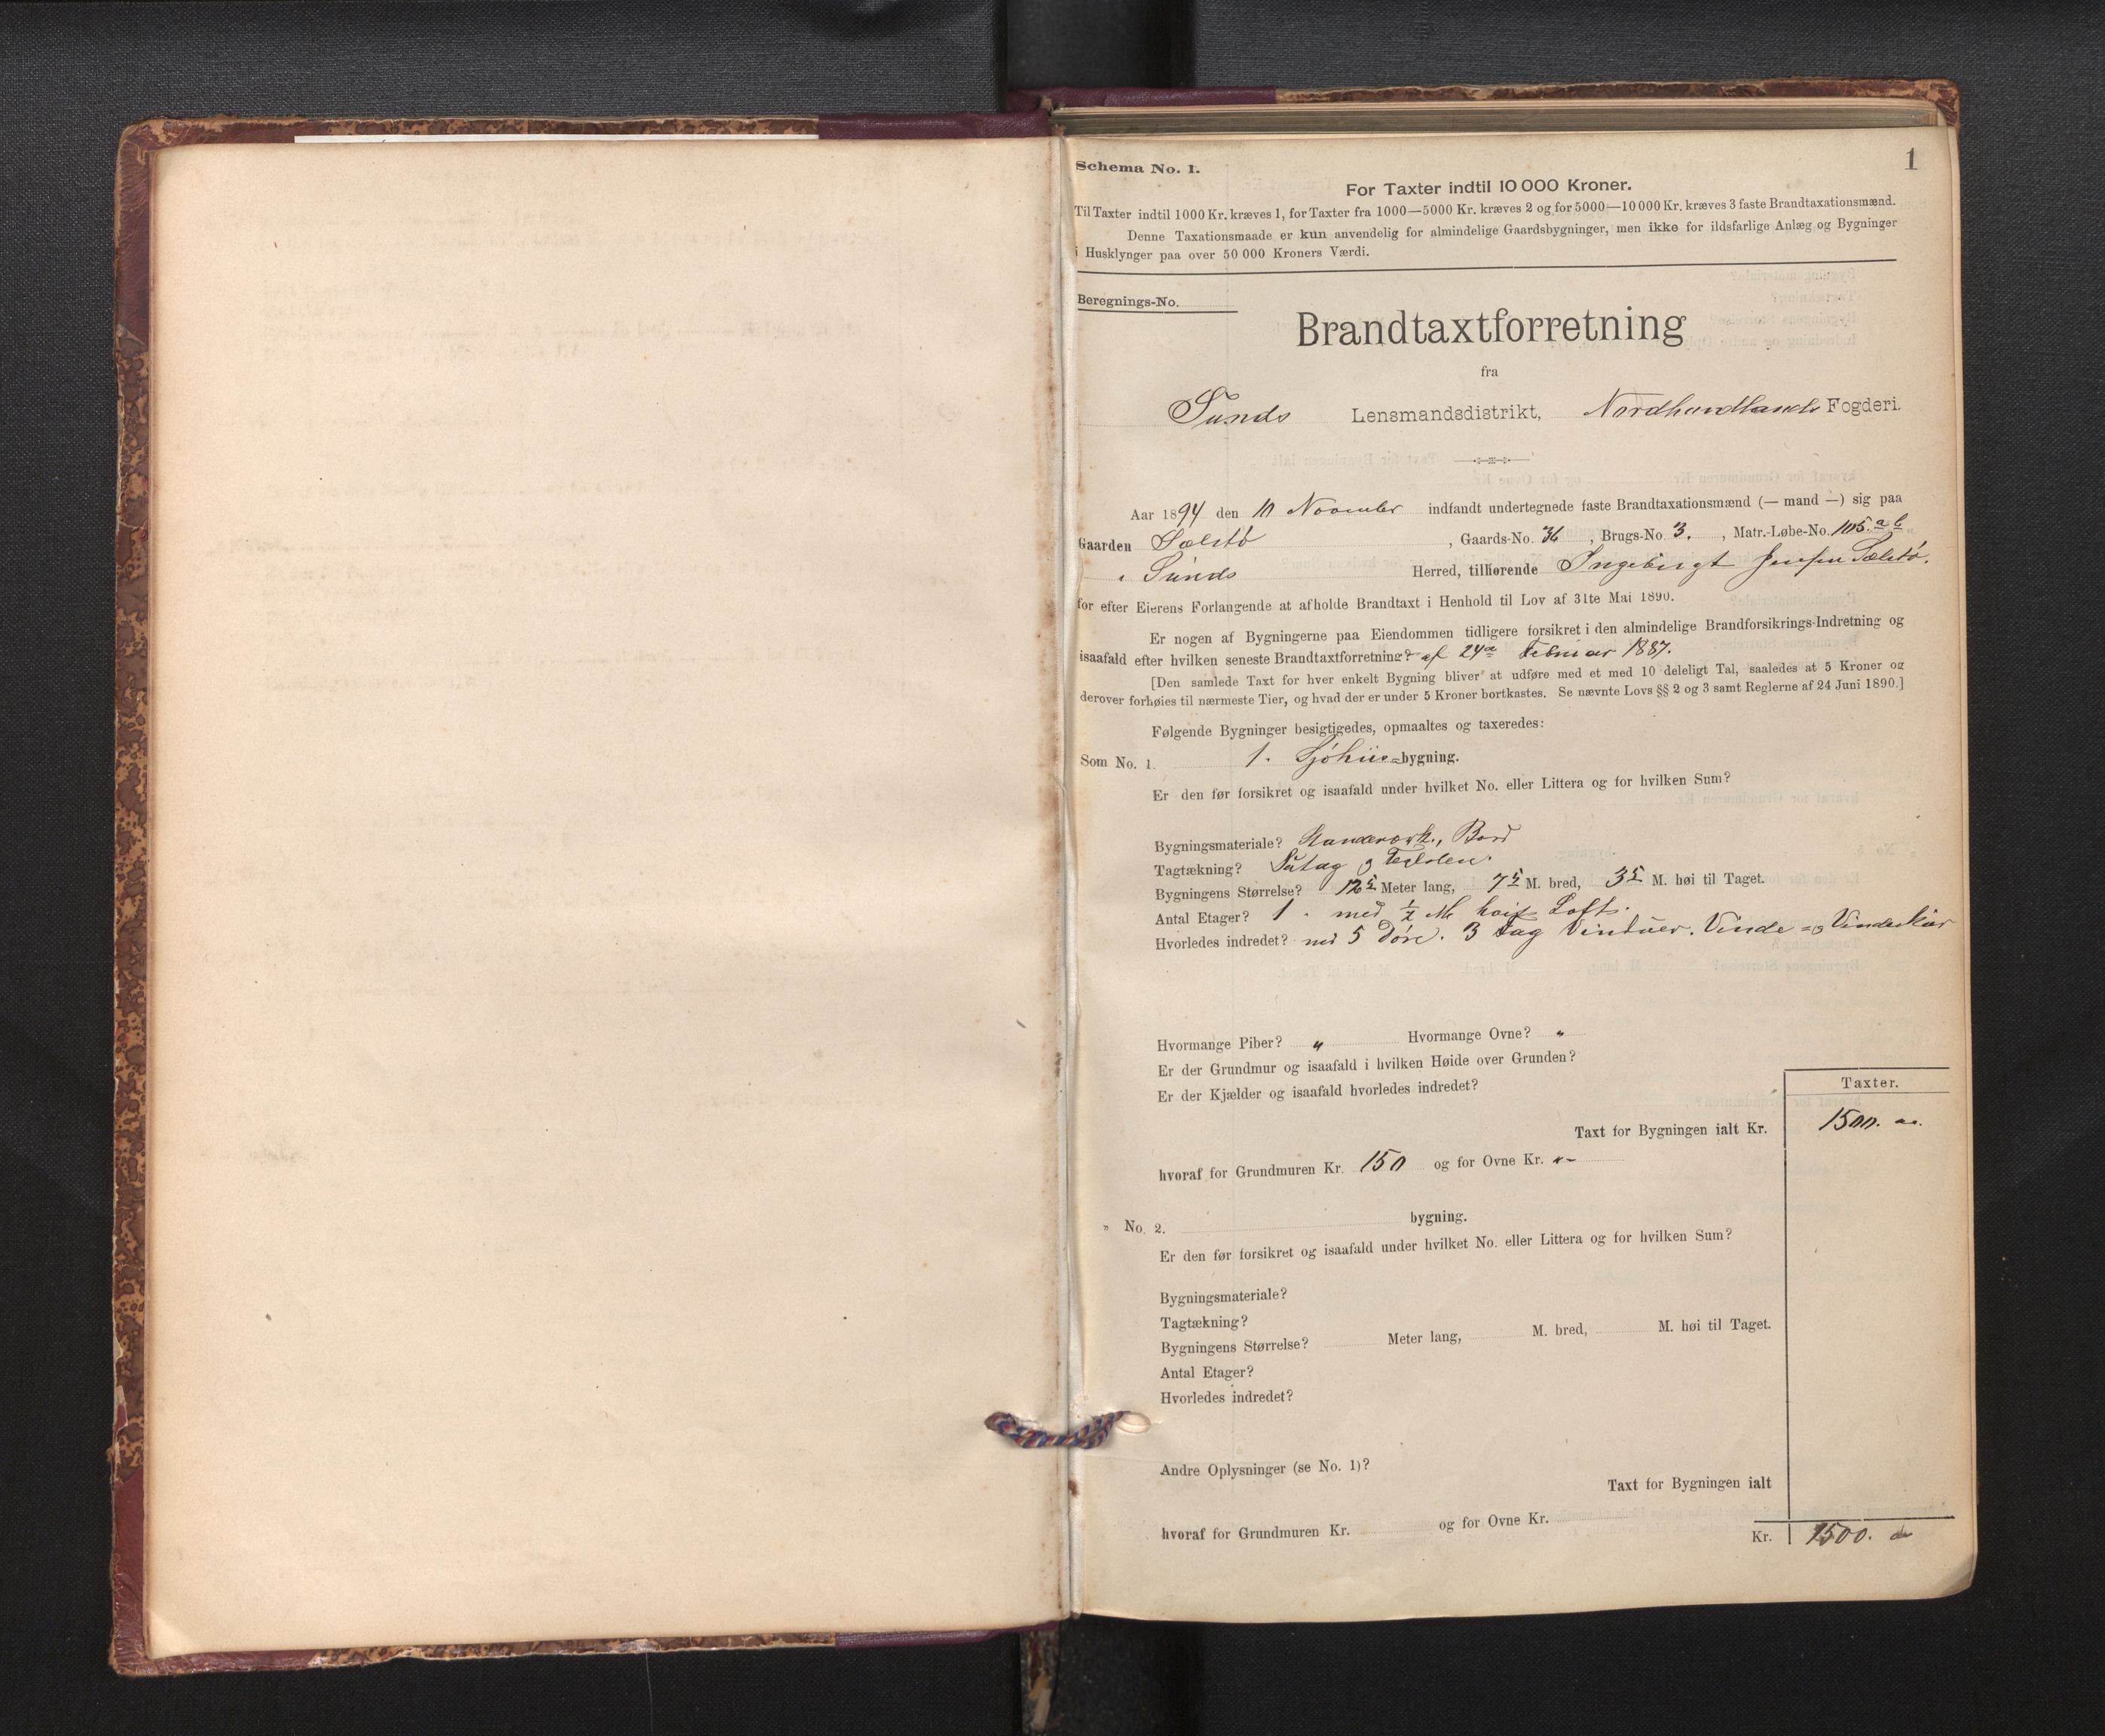 Schema No. 1.
1
For Taxter indtil 10 000 Kroner.
Til Taxter indtil 1000 Kr. kræves 1, for Taxter fra 1000—5000 Kr. kræves 2 og for 5000—10 000 Kr. kræves 3 faste Brandtaxationsmænd.
Denne Taxationsmaade er kun anvendelig for almindelige Gaardsbygninger, men ikke for ildsfarlige Anlæg og Bygninger
i Husklynger paa over 50 000 Kroners Værdi.
Beregnings-No.
Brandtaxtforretning
fra
Sunds Lensmandsdistrikt, Nordhordlands Fogderi.
Aar 1894 den 10 November indfandt undertegnede faste Brandtaxationsmænd (— mand —) sig paa
Gaarden Sælstö, Gaards-No. 36, Brugs-No. 3., Matr.-Løbe-No. 105.a b
i Sunds Herred, tilhørende Ingebrigt Jensen Sælstö.
for efter Eierens Forlangende at afholde Brandtaxt i Henhold til Lov af 31te Mai 1890.
Er nogen af Bygningerne paa Eiendommen tidligere forsikret i den almindelige Brandforsikrings-Indretning og
isaafald efter hvilken seneste Brandtaxtforretning? af 24de Februar 1887.
[Den samlede Taxt for hver enkelt Bygning bliver at udføre med et med 10 deleligt Tal, saaledes at 5 Kroner og
derover forhøies til nærmeste Tier, og hvad der er under 5 Kroner bortkastes. Se nævnte Lovs §§ 2 og 3 samt Reglerne af 24 Juni 1890.]
Følgende Bygninger besigtigedes, opmaaltes og taxeredes:
Som No. 1. 1. Sjöhus-bygning.
Er den før forsikret og isaafald under hvilket No. eller Littera og for hvilken Sum?
Bygningsmateriale? Bord
Tagtækning? Sutag og
Bygningens Størrelse? 12 5 Meter lang, 7 5 M. bred, 3 5 M. høi til Taget.
Antal Etager? 1. med 1/2 M höit Loft.
Hvorledes indredet? med 5 Döre. 3 Fag Vinduer. Vinde- og
Hvormange Piber? " Hvormange Ovne? "
Er der Grundmur og isaafald i hvilken Høide over Grunden?
Er der Kjælder og isaafald hvorledes indredet?
Taxter.
Taxt for Bygningen ialt Kr. 1500.
hvoraf for Grundmuren Kr. 150 og for Ovne Kr. "-
" No. 2. bygning.
Er den før forsikret og isaafald under hvilket No. eller Littera og for hvilken Sum?
Bygningsmateriale?
Tagtækning?
Bygningens Størrelse? Meter lang, M. bred, M. høi til Taget.
Antal Etager?
Hvorledes indredet?
Andre Oplysninger (se No. 1)?
Taxt for Bygningen ialt
hvoraf for Grundmuren Kr. og for Ovne Kr.
Kr. 1500.